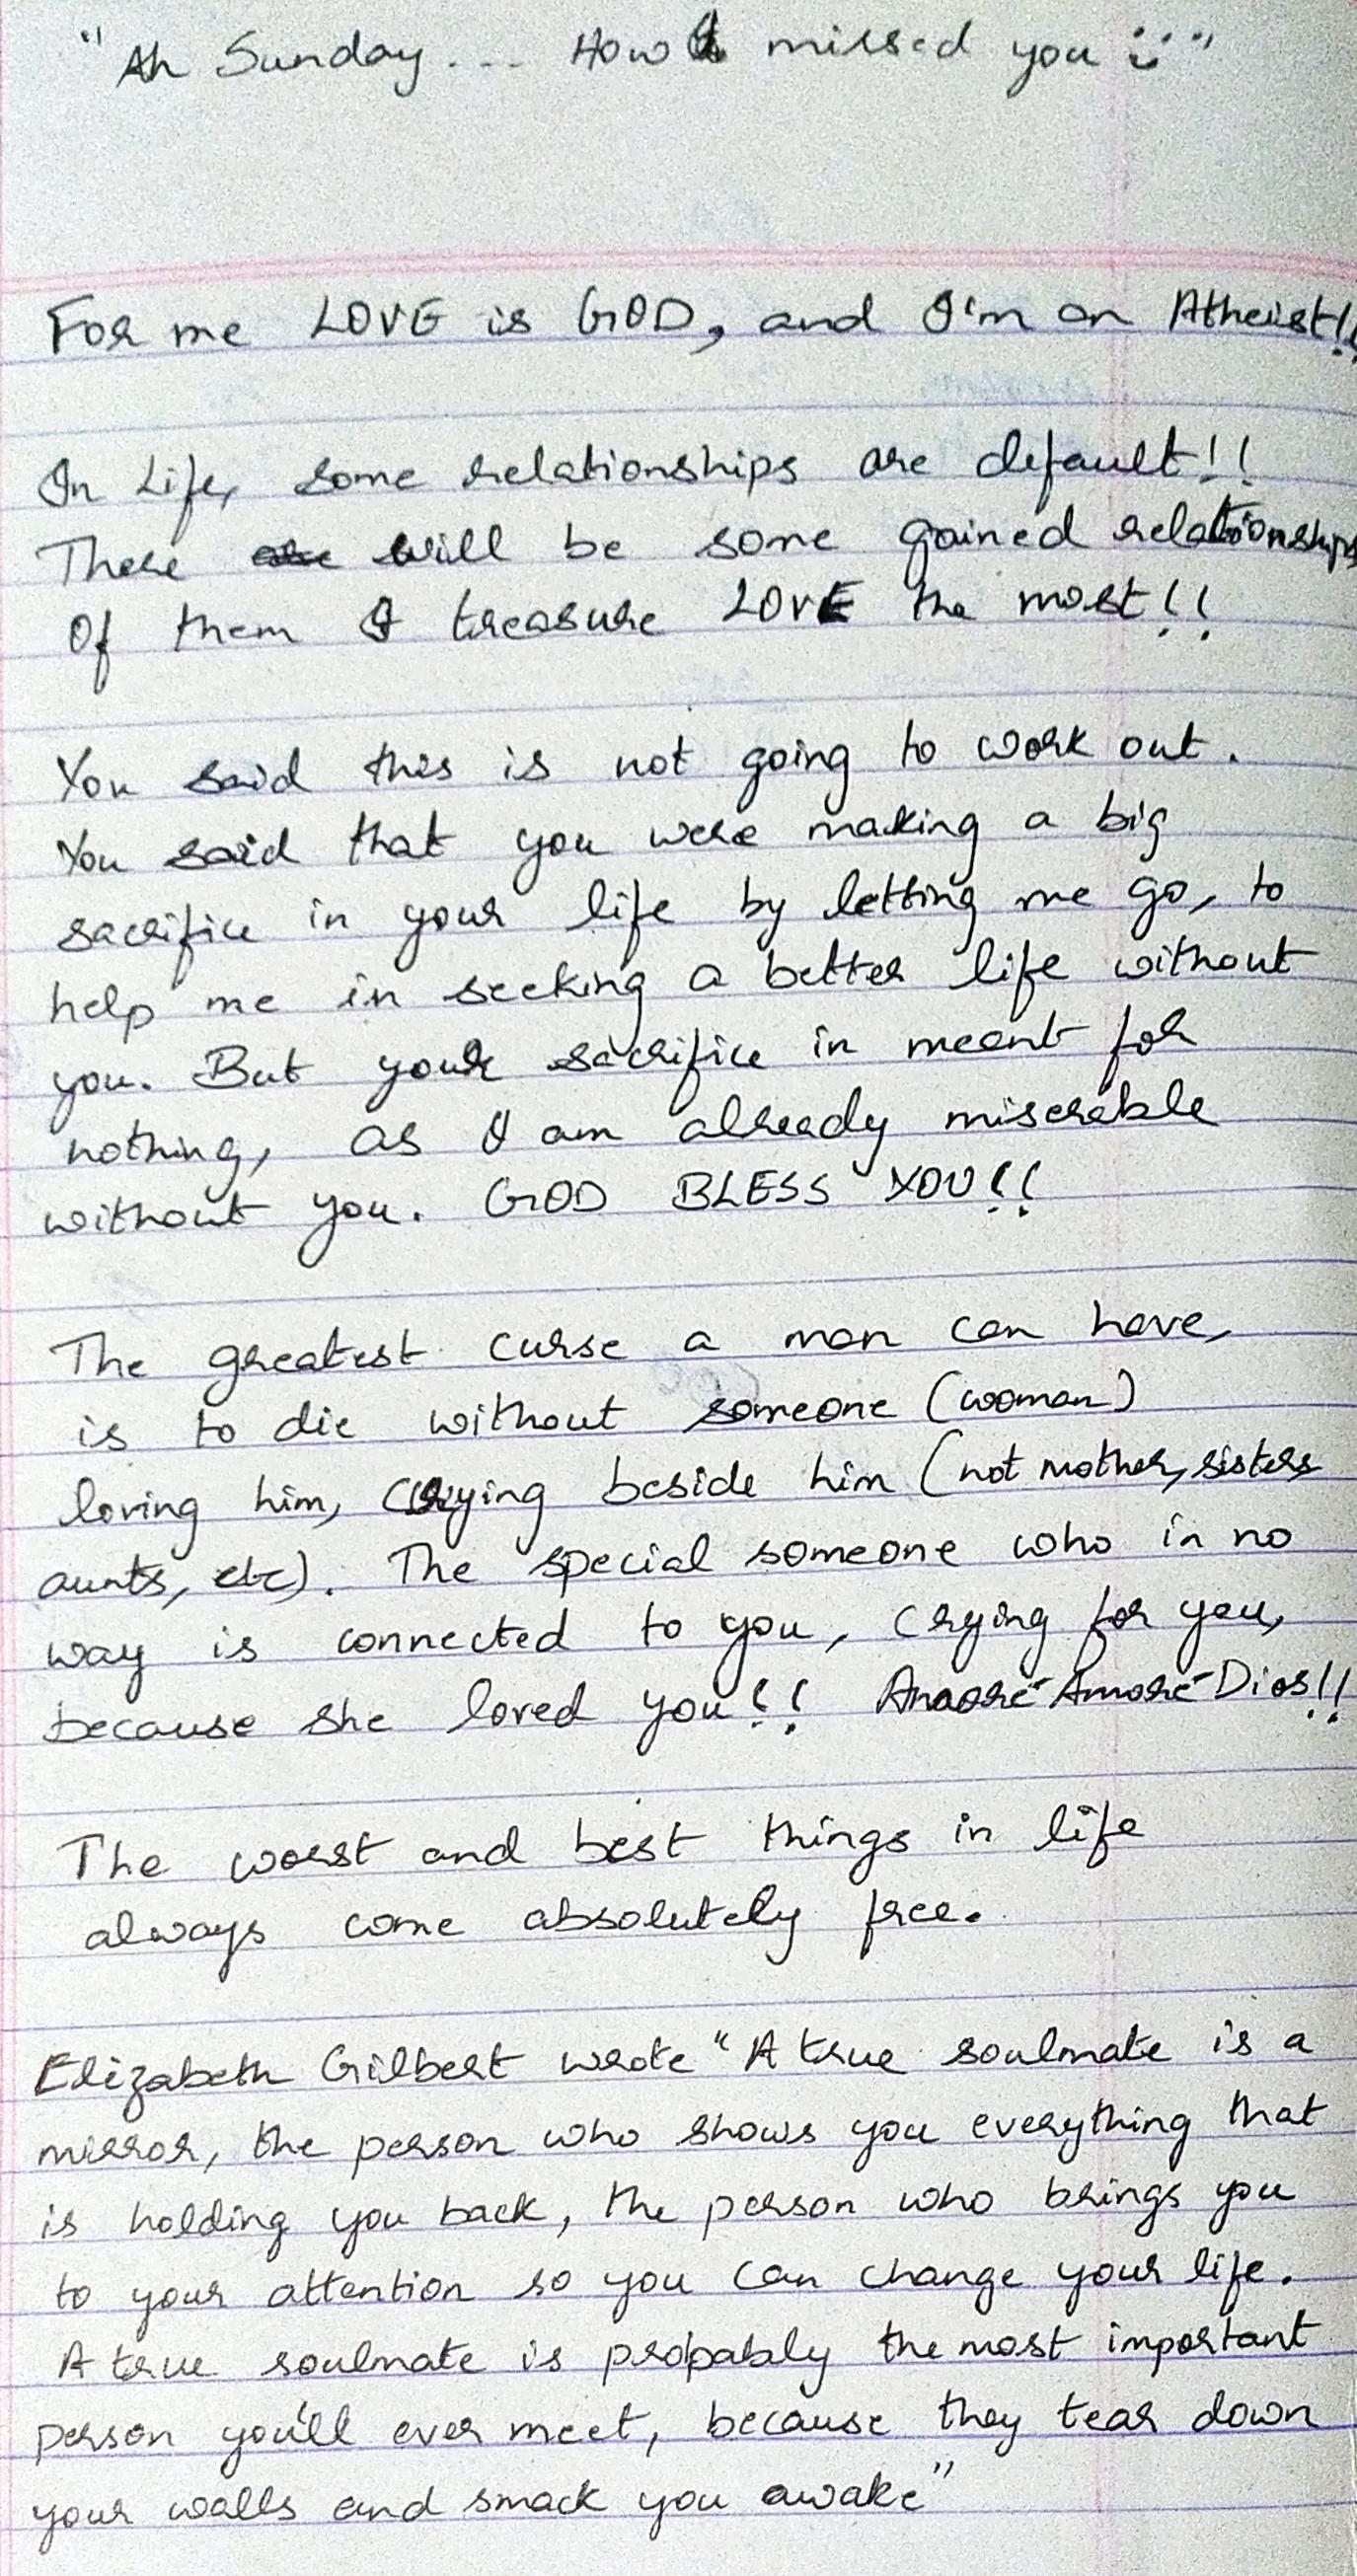 "Ah Sunday... How I missed you :)"
For me LOVE is GOD, and I'm an Atheist!!
In Life, some relationships are default!!
There will be some gained relationships
Of them I treasure LOVE the most!!
You said this is not going to work out.
You said that you were making a big
sacrifice in your life by letting me go, to
help me in seeking a better life without
you. But your sacrifice in meant for
nothing, as I am already miserable
without you. GOD BLESS YOU!!
The greatest curse a man can have,
is to die without someone (woman)
loving him, crying beside him (not mother, sisters
aunts, etc). The special someone who in no
way is connected to you, crying for you,
because she loved you!! Amoré Dios!!
The worst and best things in life
always come absolutely free.
Elizabeth Gilbert wrote "A true soulmate is a
mirror, the person who shows you everything that
is holding you back, the person who brings you
to your attention so you can change your life.
A true soulmate is propably the most important
person you'll ever meet, because they tear down
your walls and smack you awake"